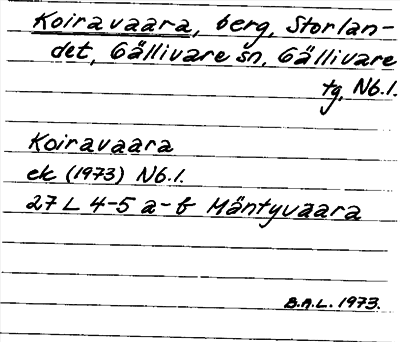 Koiravaara, berg, Storlan-
det, Gällivare sn, Gällivare
tg, Nb.l.
Koiravaara
ek (1973) Nb.l.
27 L 4-5 a-b Mäntyvaara
B.A.L. 1973.